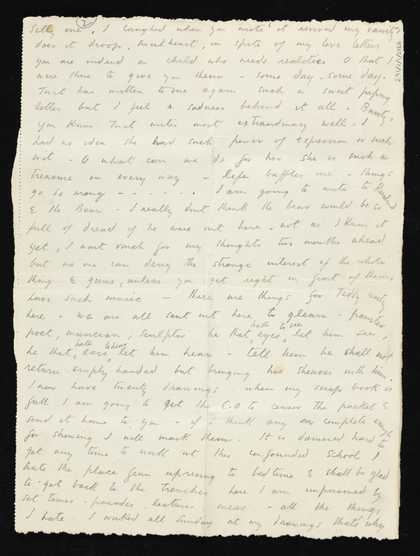 Silly one, I laughed when you wrote it around my
does it droop, sweetheart, in spite of my love letters
you are indeed a child who needs realities O that I
were there to give you them - some day. some day.
Turk has written to me again such a sweet
letter but I feel a sadness behind it all -
you know Turk writes most extraordinary well - I
had no idea she had such power of expression or such
wit - O what can we do for her she is such a
treasure in every way - life baffles me - things
go so wrong - - - - - - I am going to write to
& the Bear - I really don't think the bear would be so
full of dread if he were out here - not as I know it
yet, I can't vouch for my thoughts two months ahead
but no one can deny the strange interest of the whole
thing & guns, unless you get right in front of them,
have such music - There are things for Teddy out
here - we are all sent out here to glean - painter
poet, musician, sculptor he that hath eyes to see let him see,
he that hath ears let him hear - tell him he shall not
return empty handed but bringing his sheaves with him,
I now have twenty drawings, when my scraps book is
full I am going to get the C.O to censor the packet &
send it home to you - if I think any are complete enough
for showing I will mark them. It is damned hard to
get any time to work at this confounded school I
hate the place from uprising to bedtime & shall be glad
to get back to the trenches, here I am imprisoned by
set times - parades, lectures, mess - all the things
I hate. I worked all Sunday at my drawings that's why